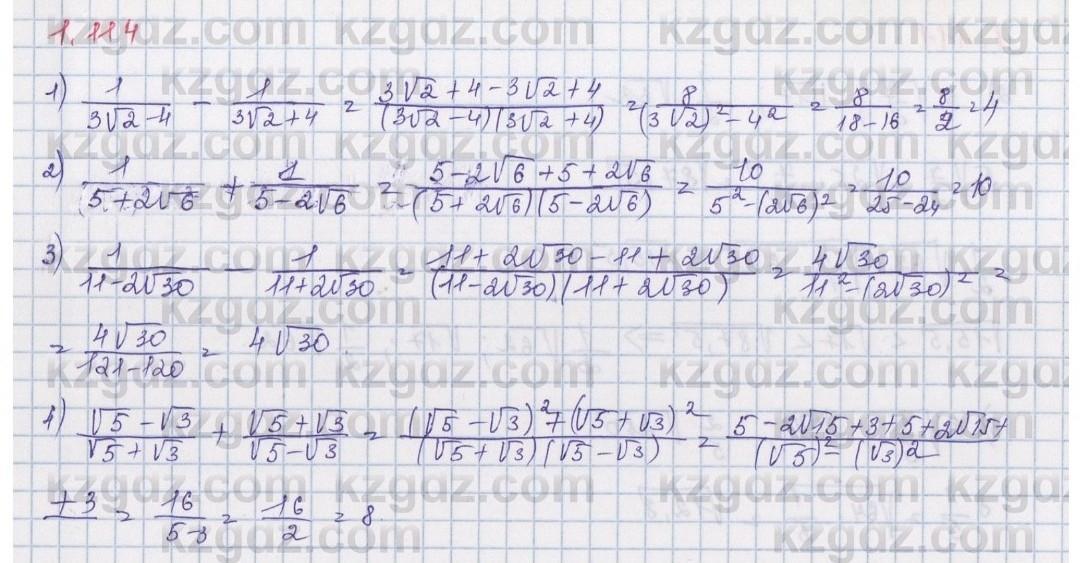 1.114
1) 1/(3√2-4) - 1/(3√2+4) = (3√2+4-3√2+4)/((3√2-4)(3√2+4)) = 8/((3√2)²-4²) = 8/(18-16) = 8/2 = 4
2) 1/(5+2√6) + 1/(5-2√6) = (5-2√6+5+2√6)/((5+2√6)(5-2√6)) = 10/(5²-(2√6)²) = 10/(25-24) = 10
3) 1/(11-2√30) - 1/(11+2√30) = (11+2√30-11+2√30)/((11-2√30)(11+2√30)) = 4√30/(11²-(2√30)²) =
= 4√30/(121-120) = 4√30.
4) (√5-√3)/(√5+√3) + (√5+√3)/(√5-√3) = ((√5-√3)²+(√5+√3)²)/((√5+√3)(√5-√3)) = (5-2√15+3+5+2√15+)/((√5)²-(√3)²)
+3 = 16/(5-3) = 16/2 = 8.
kzgdz.com